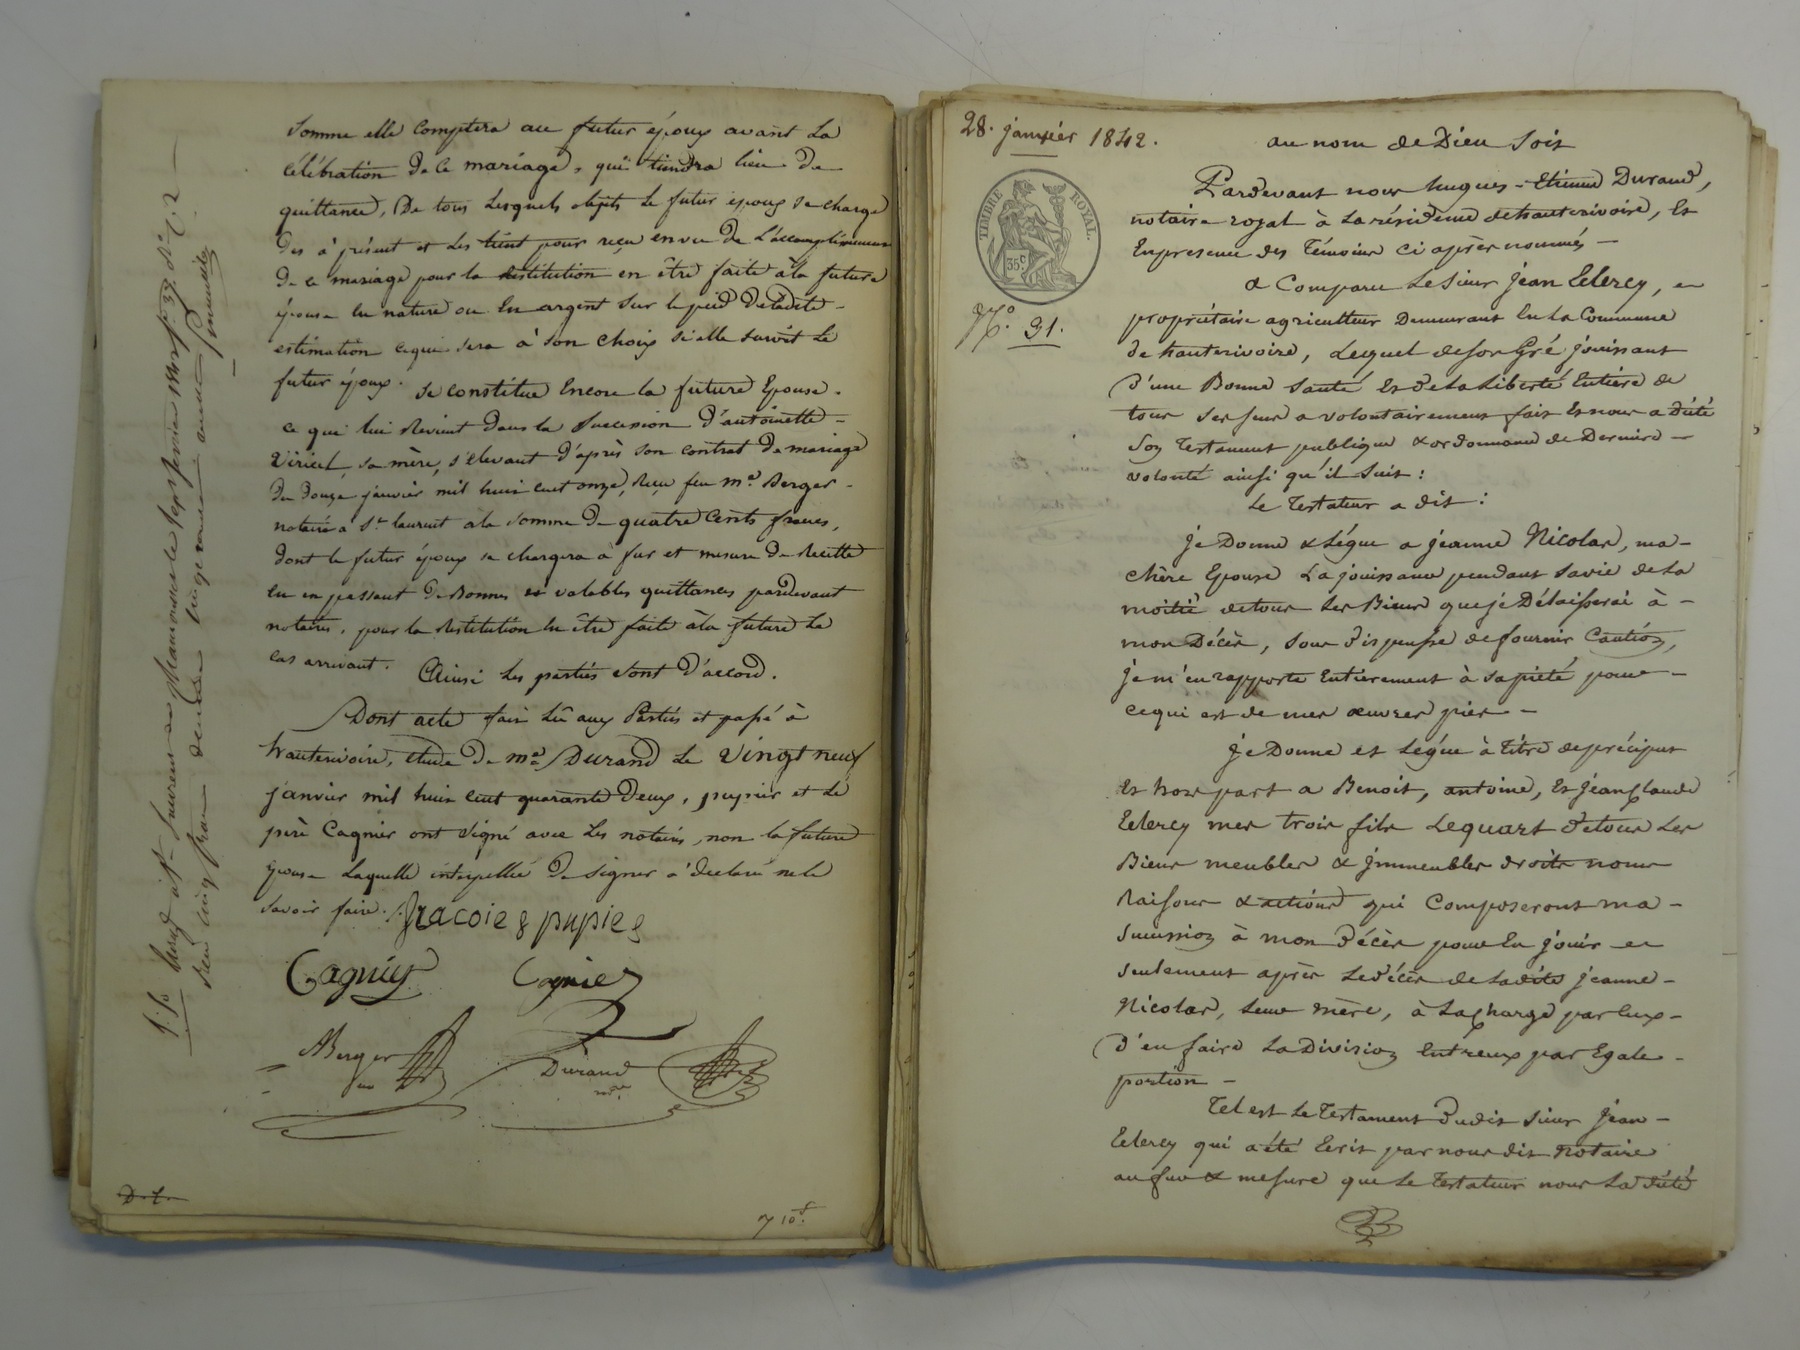 somme elle comptera au futur époux avant la
célébration de ce mariage, qui tiendra lieu de
quittance, De tous lesquels objets le futur époux se charge
des à présent et les tient pour reçu en vue de l'accomplissement
de ce mariage pour la restitution en être faite à la future
épouse en nature ou en argent sur le pied de ladite
estimation ce qui sera à son choix si elle survit le
futur époux. Se constitue Encore la future Epouse
ce qui lui Revient dans la succession d'antoinette
Viricel sa mère, s'élevant d'après son contrat de mariage
du douze janvier mil huit cent onze, Reçu feu me. Berger
notaire à St laurent à la somme de quatre Cents francs,
dont le futur époux se chargera à fur et mesure de Recette
en en passant de Bonnes et valables quittances pardevant
notaires, pour la Restitution en être faite à la future le
cas arrivant. Ainsi les parties sont d'accord.
Dont acte fait Lû aux Parties et passé à
hauterivoire, étude de me Durand Le Vingt neuf
janvier mil huit cent quarante deux, pupier et le
père Cagnier ont signé avec les notaires, non la future
Epouse Laquelle interpellée de signer a déclaré ne le
savoir faire.
pupier
Cagnier Cagnier
Berger
Durand
nore.
D. L.
710
28. janvier 1842.
TIMBRE ROYAL.
35c
No. 31.
au nom de Dieu soit
Pardevant nous hugues-Etienne Durand,
notaire royal à la résidence dehauterivoire, Et
En presence des Témoins ci après nommés —
a Comparu Le Sieur jean Leclercq,
propriétaire agriculteur Demeurant En la Commune
de hauterivoire, Lequel de son Gré jouissant
D'une Bonne santé Et de la Liberté Entière de
tous ses sens a volontairement fait Et nous a dicté
son testament publique & ordonnance de Derniere —
volonté ainsi qu'il suit :
Le Testateur a dit :
je Donne & Légue a jeanne Nicolas, ma-
chère Epouse La jouissance pendant sa vie de La
moitié detous Les Biens que je Délaisserai à -
mon Décès, sous Dispense de fournir Caution,
je m'en rapporte Entierement à sa piété pour -
ce qui est de mes œuvres pies -
je Donne et Legue à titre de précipus
Et hors part a Benoit, antoine, Et jean Claude
Leclercq mes trois fils Le quart detous Les
Biens meubles & jmmeubles droits noms
Raisons & actions qui Composeront ma -
succession à mon Décès pour En jouir
seulement après Le décès de Ladite jeanne -
Nicolas, Leur mère, à La charge par Eux -
D'en faire La Division Entreux par Egale -
portion -
Tel est Le Testament Dudit sieur jean -
Leclercq qui a été Ecrit par nous dit notaire
au fur & mesure que Le Testateur nous La dicté